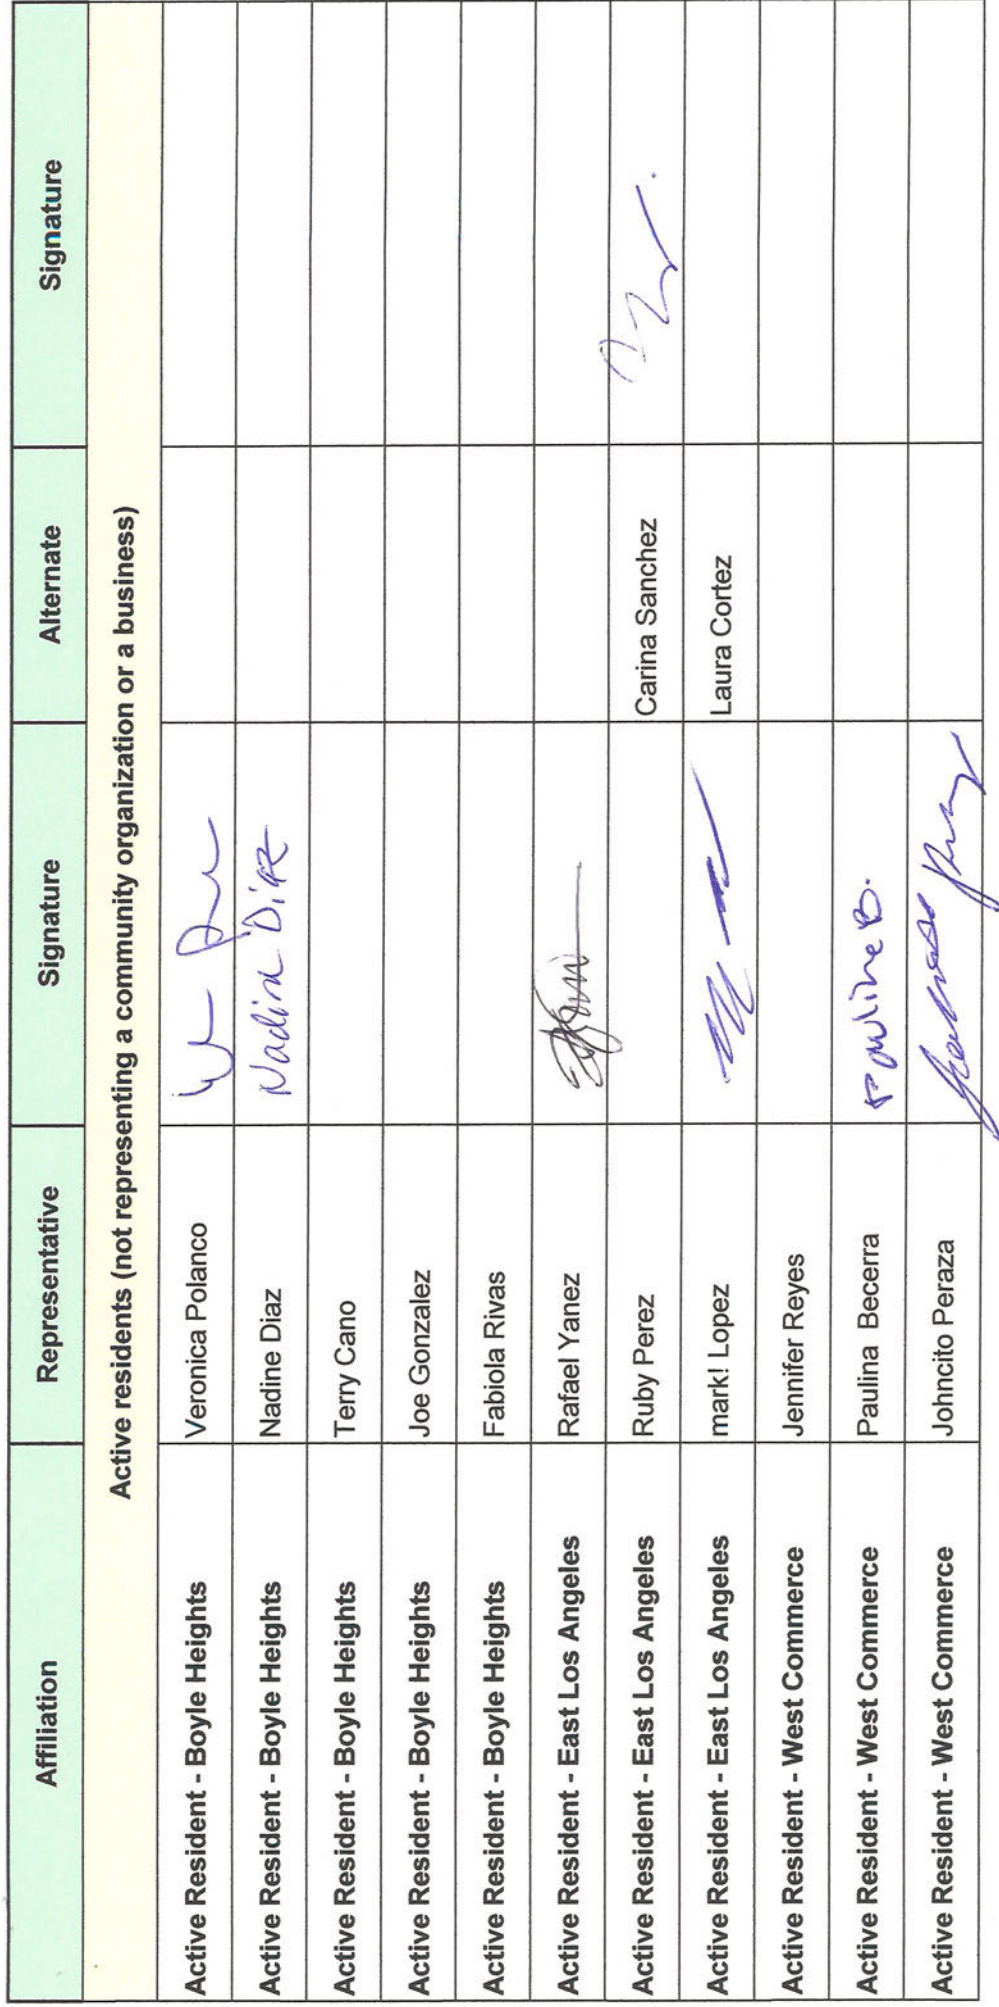 Affiliation Representative Signature Alternate Signature
Active residents (not representing a community organization or a business)
Active Resident - Boyle Heights Veronica Polanco
Active Resident - Boyle Heights Nadine Diaz Nadine Diaz
Active Resident - Boyle Heights Terry Cano
Active Resident - Boyle Heights Joe Gonzalez
Active Resident - Boyle Heights Fabiola Rivas
Active Resident - East Los Angeles Rafael Yanez
Active Resident - East Los Angeles Ruby Perez Carina Sanchez
Active Resident - East Los Angeles mark! Lopez Laura Cortez
Active Resident - West Commerce Jennifer Reyes
Active Resident - West Commerce Paulina Becerra Pauline B.
Active Resident - West Commerce Johncito Peraza